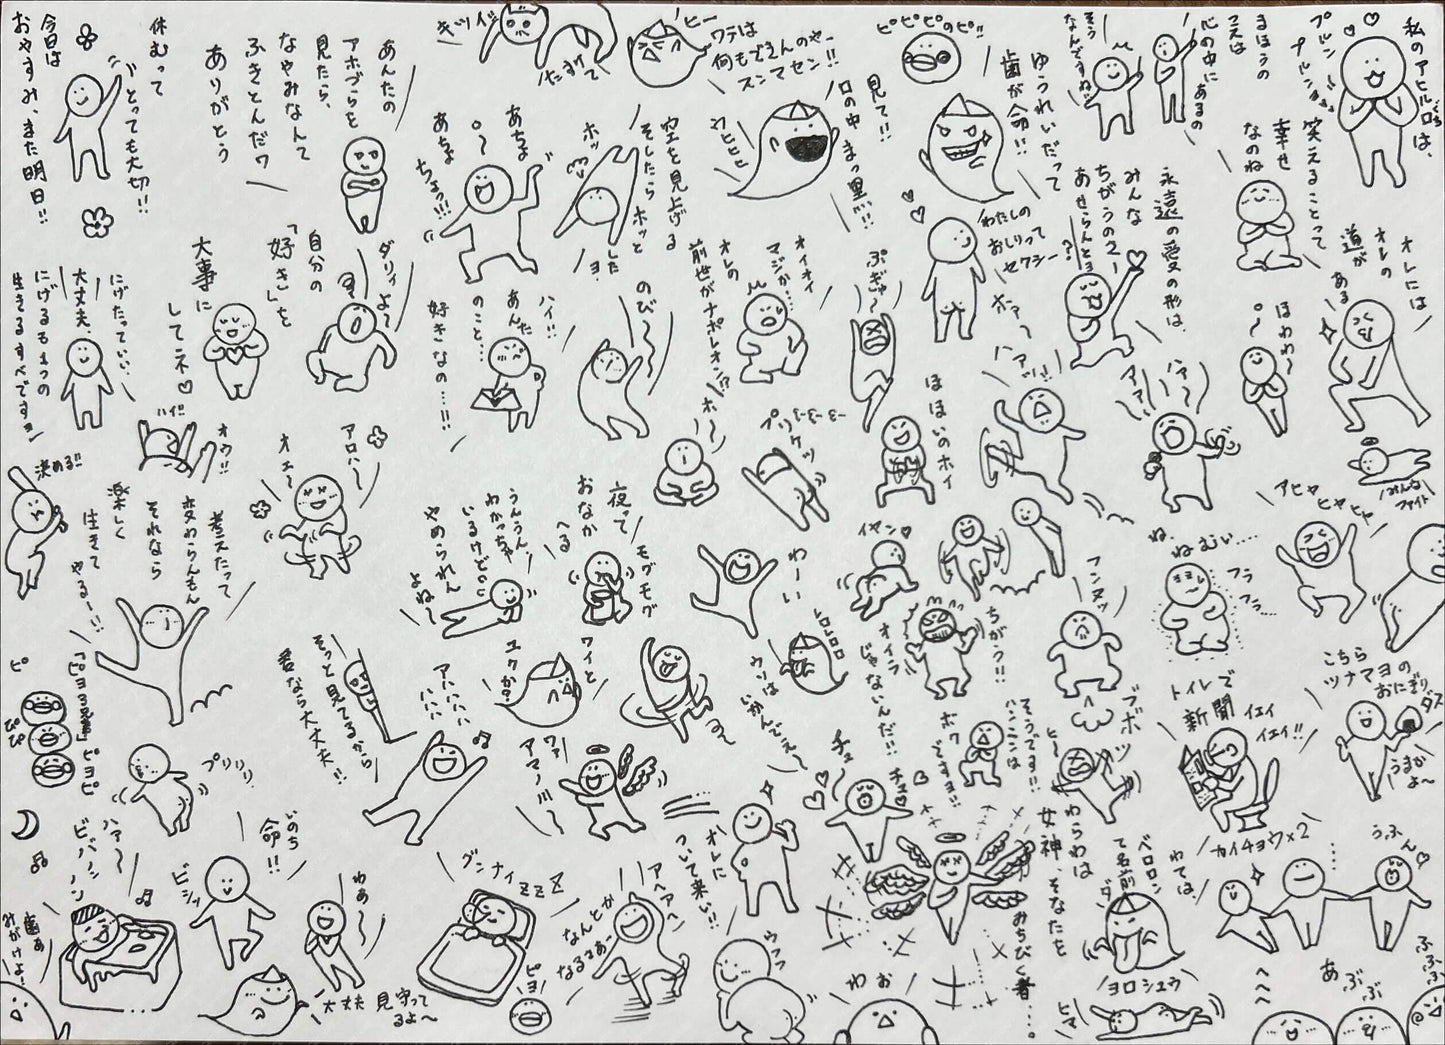 私のアヒル口は、
プルン
プルンョ
まほうの
コえは
心の中にあるの
そう
なんですね
ゆうれいだって
歯が命!!
ピピピのピ!!
ヒー
ワテは
何もでえんのやー
スンマセン!!
たすけて
キツイ
あんたの
アホづらを
見たら、
なやみなんて
ふきとんだワ
ありがとう
休むって
とっても大切!!
今日は
おやすみ、また明日!!
オレには
オレの
道が
ある
笑えることって
幸せ
なのね
ほわわ〜
永遠の愛の形は、
みんな
ちがうの?
あせらんとョ
わたしの
おしりって
セクシー
見て!!
口の中 まっ黒!!
ウヒヒヒ
空を見上げる
そしたら ホッと
した
ョ
ホッ
あちょ
あちょ
ちょっ!!!
ダリィよ〜
自分の
「好き」を
大事に
してネ♡
にげたっていい、
大丈夫、
にげるも1つの
生きるすべですョ
オイオイ
マジか…
オレの
前世がナポレオン!?
ぷぎゃ〜
のび〜
ハイ!!
あんた
のこと…
好きなの…!!
ホァ〜
ハアッ!!
ハァ〜
アアア
みんな
ファイト
アヒャ
ヒャヒャ
ほほいのホイ
プリケツ
ホ〜
アロハ〜
オェ〜
ハイ!!
オウ!!
決める!!
考えたって
変わらんもん
それなら
楽しく
生きて
やるー!!
うんうん
わかっちゃ
いるけど
やめられん
よね〜
夜って
おなか
へる
モグモグ
わーい
イヤン♡
ね、
ねむい…
フラ
フラ…
フンヌッ
ブボッ
ちがう!!
オイラ
じゃないんだ!!
トロロロロ
ウソは
いかんでぇ〜
ワイと
ユクか?
ョ〜
アハハハ
ハハハ
そっと見てるから
君なら大丈夫!!
プリリリ
ピ
ぴぴ
ピヨピ
こちら
ツナマヨの
おにぎり
ダス
うまか
よ〜
トイレで
新聞
イエイ
イエイ!!
そうでる!!
ハンニンは
ボク
ですョ!!
ヒ〜
チュ
チュ
わらわは
女神、そなたを
みちびく者……。
オレに
ついて来い!!
ワァ!
アマ〜
グンナイzzZ
なんとか
なるさあー
アヘアヘ
いのち
命!!
ビシッ
わぁ〜
大丈夫 見守って
るよ〜
ハァ〜
ビバノンノン
歯ぁ
みがけよ!
ピヨ
ウフフ
わお
わては、
ベロロン
て名前
ダ
ヨロシュウ
ヒマ
カイチョウ×2
うふん♡
へへへ
あぶぶ
ふふふふ